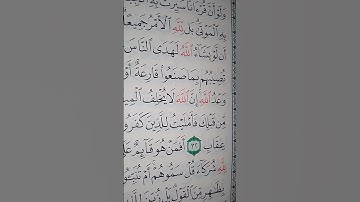 وَلَوْ أَنَّ قُرْءَانًا سُيِّرَتْ بِهِ
بِهِ ٱلْمَوْتَىٰ بَل لِّلَّهِ ٱلْأَمْرُ جَمِيعًا
أَن لَّوْ يَشَآءُ ٱللَّهُ لَهَدَى ٱلنَّاسَ
تُصِيبُهُم بِمَا صَنَعُوا۟ قَارِعَةٌ أَوْ
وَعْدُ ٱللَّهِ إِنَّ ٱللَّهَ لَا يُخْلِفُ
مِّن قَبْلِكَ فَأَمْلَيْتُ لِلَّذِينَ كَفَرُوا۟
عِقَابِ ٣٢ أَفَمَنْ هُوَ قَآئِمٌ
لِلَّهِ شُرَكَآءَ قُلْ سَمُّوهُمْ أَمْ
بِظَٰهِرٍ مِّنَ ٱلْقَوْلِ بَلْ زُيِّنَ